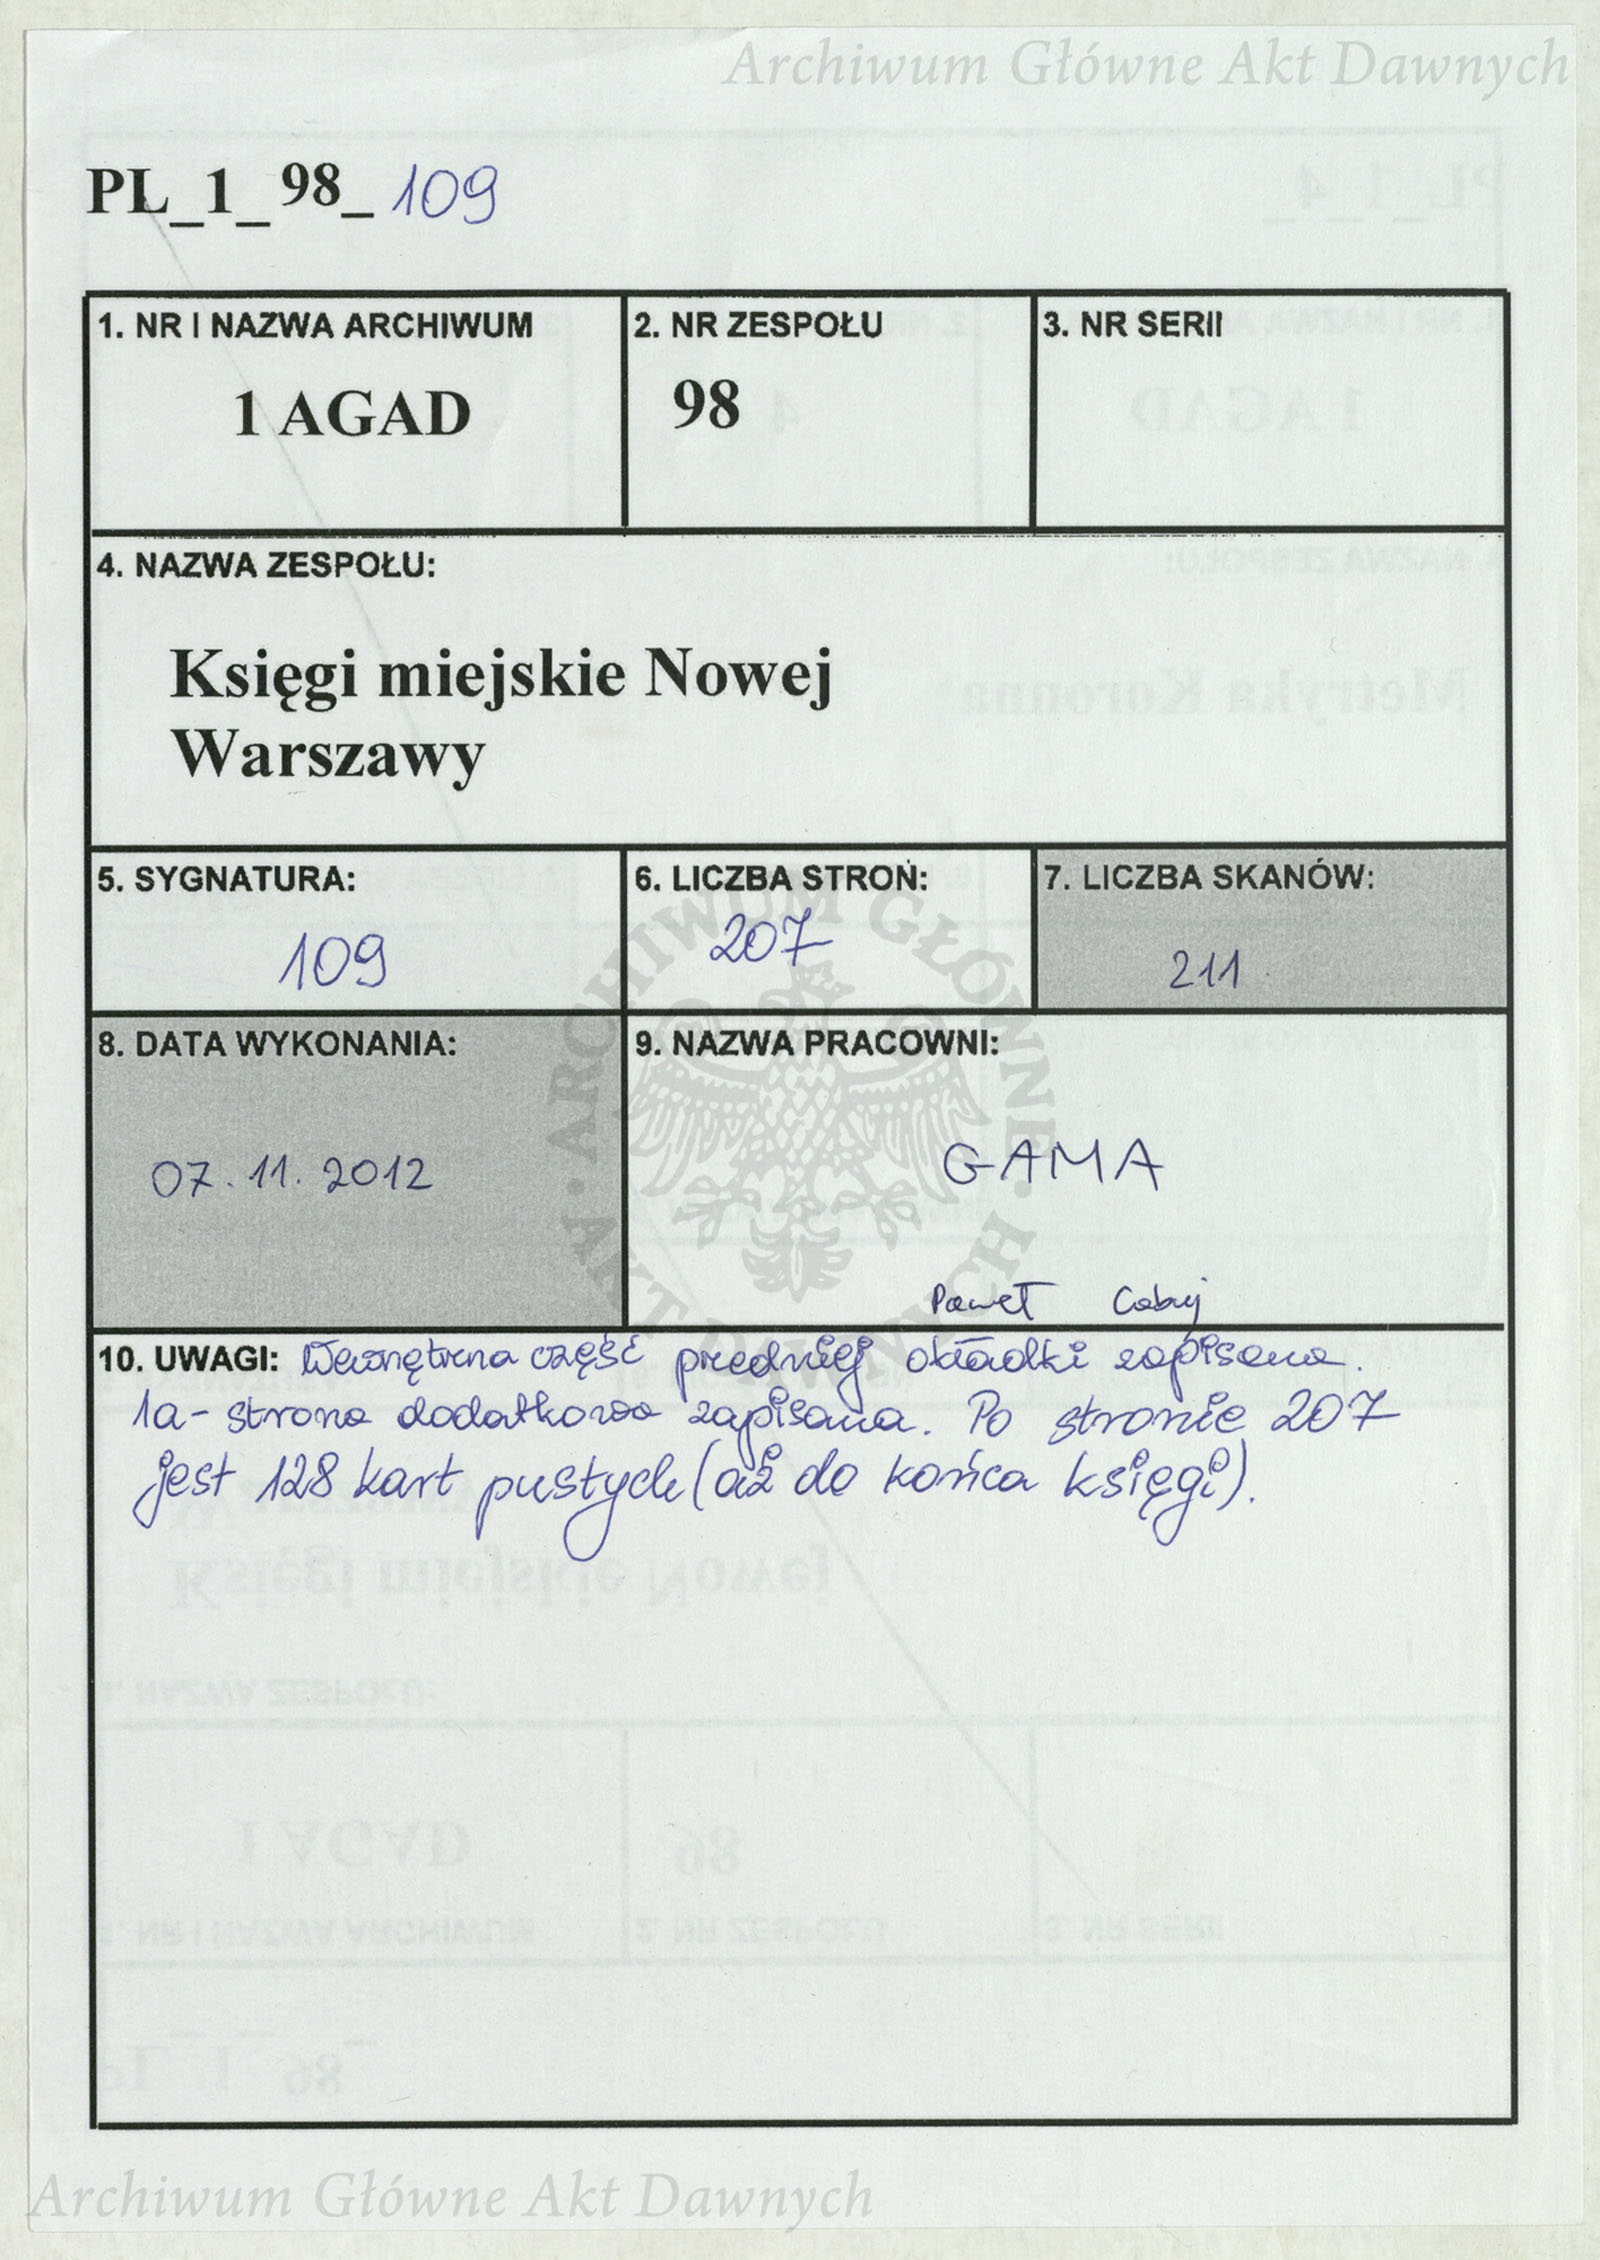 Archiwum Główne Akt Dawnych
PL_1_98_109
1. NR I NAZWA ARCHIWUM
1 AGAD
2. NR ZESPOŁU
98
3. NR SERII
4. NAZWA ZESPOŁU:
Księgi miejskie Nowej
Warszawy
5. SYGNATURA:
109
6. LICZBA STRON:
207
7. LICZBA SKANÓW:
211
8. DATA WYKONANIA:
07.11.2012
9. NAZWA PRACOWNI:
GAMA
Paweł
10. UWAGI: Wewnętrzna część przedniej okładki zapisana.
1a - strona dodatkowo zapisana. Po stronie 207
jest 128 kart pustych (aż do końca księgi).
ARCHIWUM GŁÓWNE · AKT DAWNYCH ·
Archiwum Główne Akt Dawnych